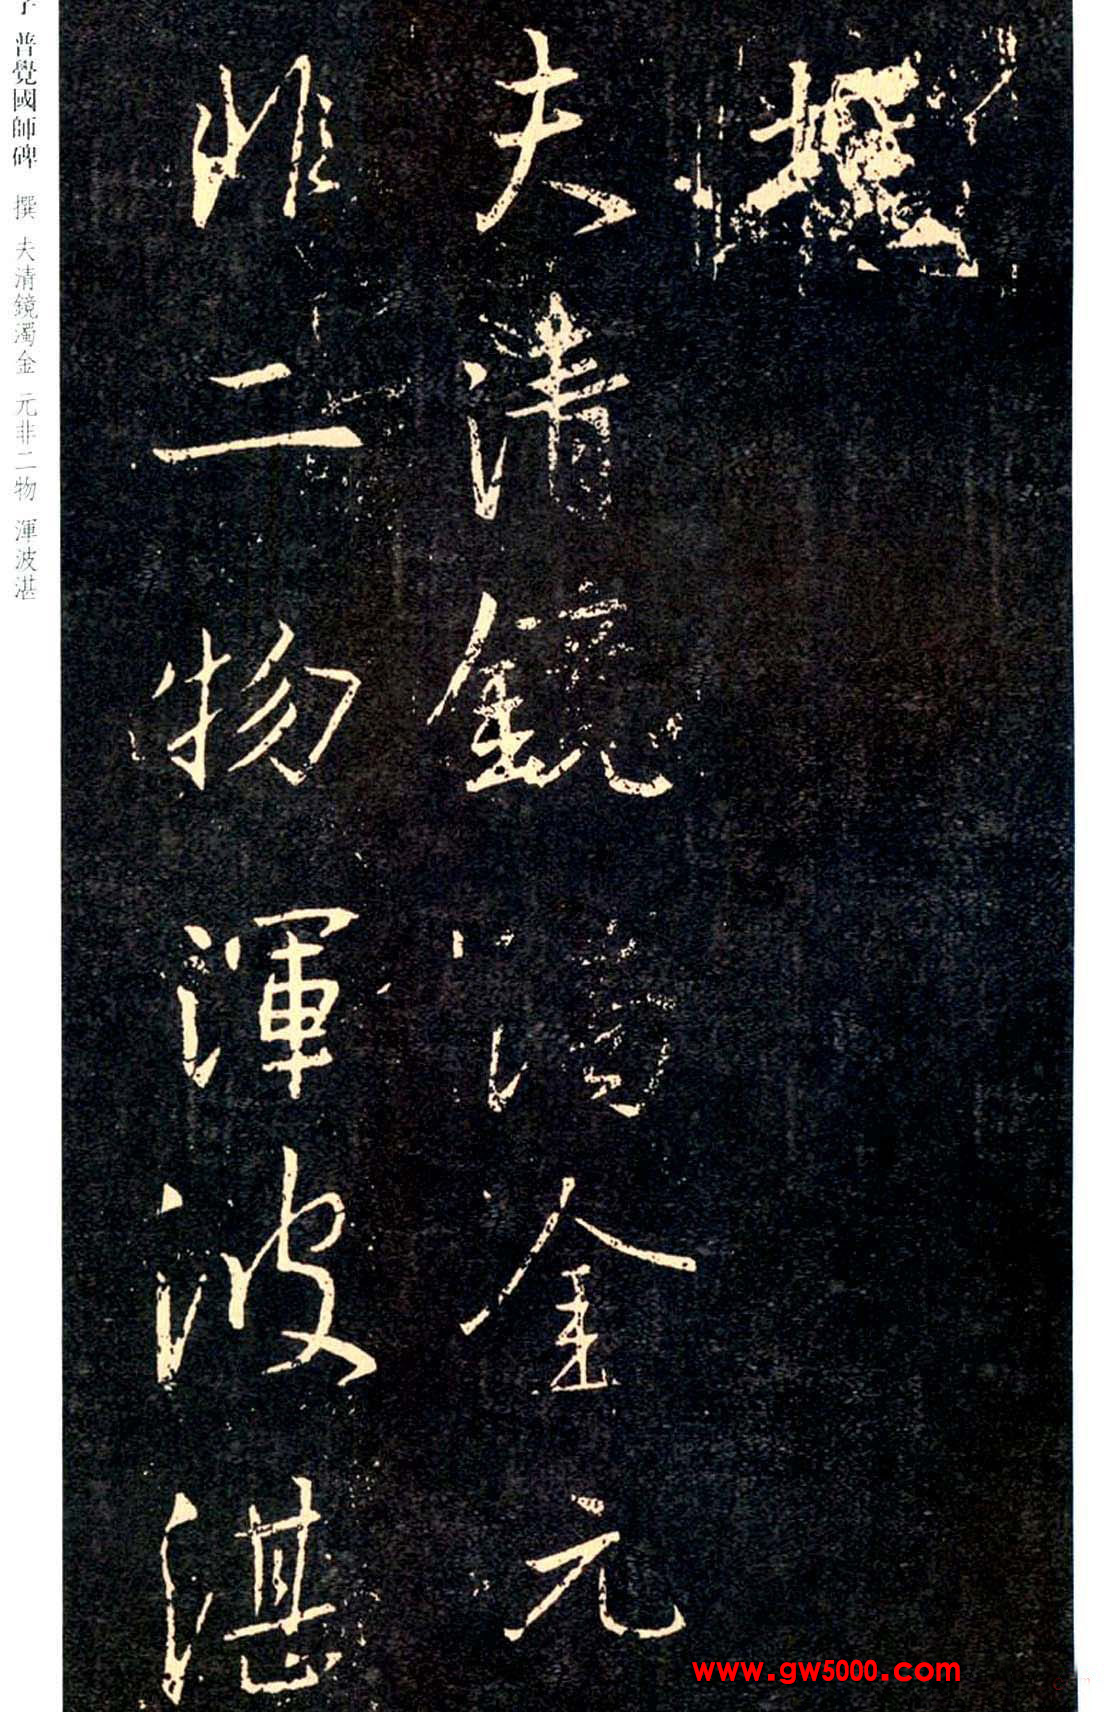 撰
夫清鏡濁金元
非二物渾波湛
普覺國師碑 撰 夫清鏡濁金 元非二物 渾波湛
www.gw5000.com